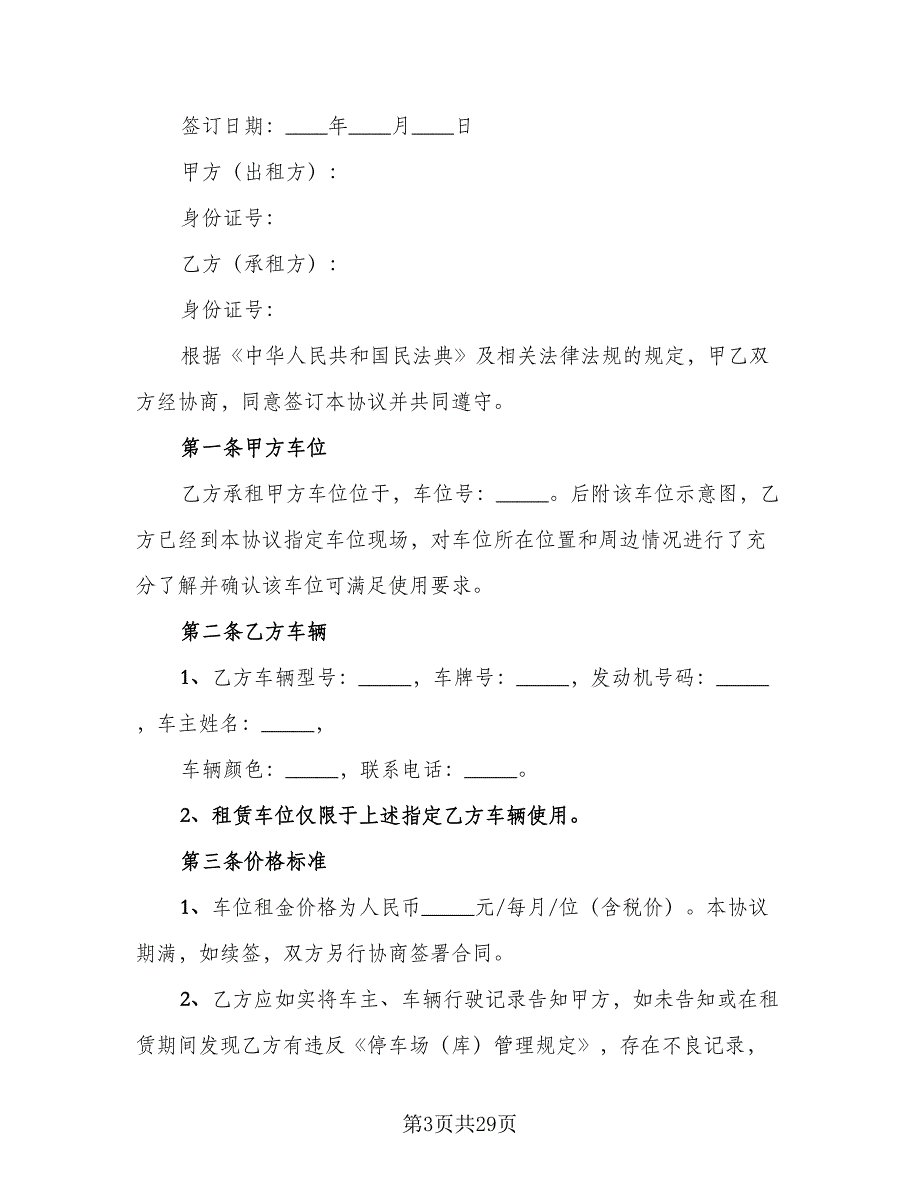 签订日期：____年____月____日
甲方（出租方）：
身份证号：
乙方（承租方）：
身份证号：
根据《中华人民共和国民法典》及相关法律法规的规定，甲乙双
方经协商，同意签订本协议并共同遵守。
第一条甲方车位
乙方承租甲方车位位于，车位号：_____。后附该车位示意图，乙
方已经到本协议指定车位现场，对车位所在位置和周边情况进行了充
分了解并确认该车位可满足使用要求。
第二条乙方车辆
1、乙方车辆型号：_____，车牌号：_____，发动机号码：_____
，车主姓名：_____，
车辆颜色：_____，联系电话：_____。
2、租赁车位仅限于上述指定乙方车辆使用。
第三条价格标准
1、车位租金价格为人民币_____元/每月/位（含税价）。本协议
期满，如续签，双方另行协商签署合同。
2、乙方应如实将车主、车辆行驶记录告知甲方，如未告知或在租
赁期间发现乙方有违反《停车场（库）管理规定》，存在不良记录，
第3页共29页